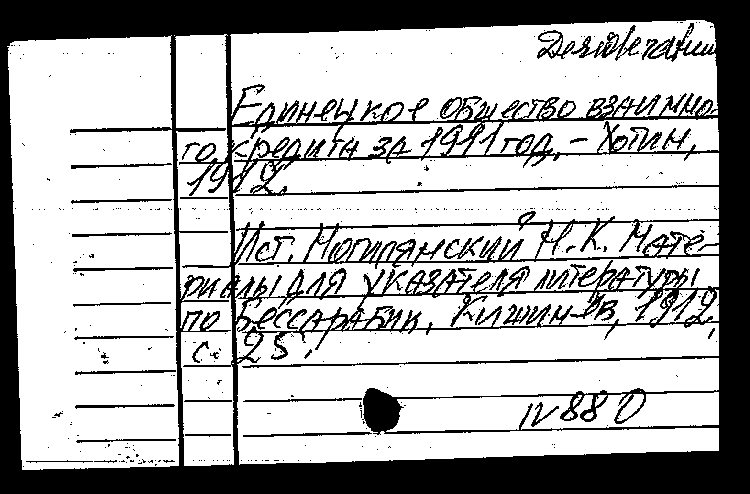 Desideratum
Единецкое общество взаимно-
го кредита за 1911 год. – Хотин,
1912.
Ист. Могилянский Н.К. Мате-
риалы для указателя литературы
по Бессарабии, Кишинев, 1912,
с. 25.
IV 880